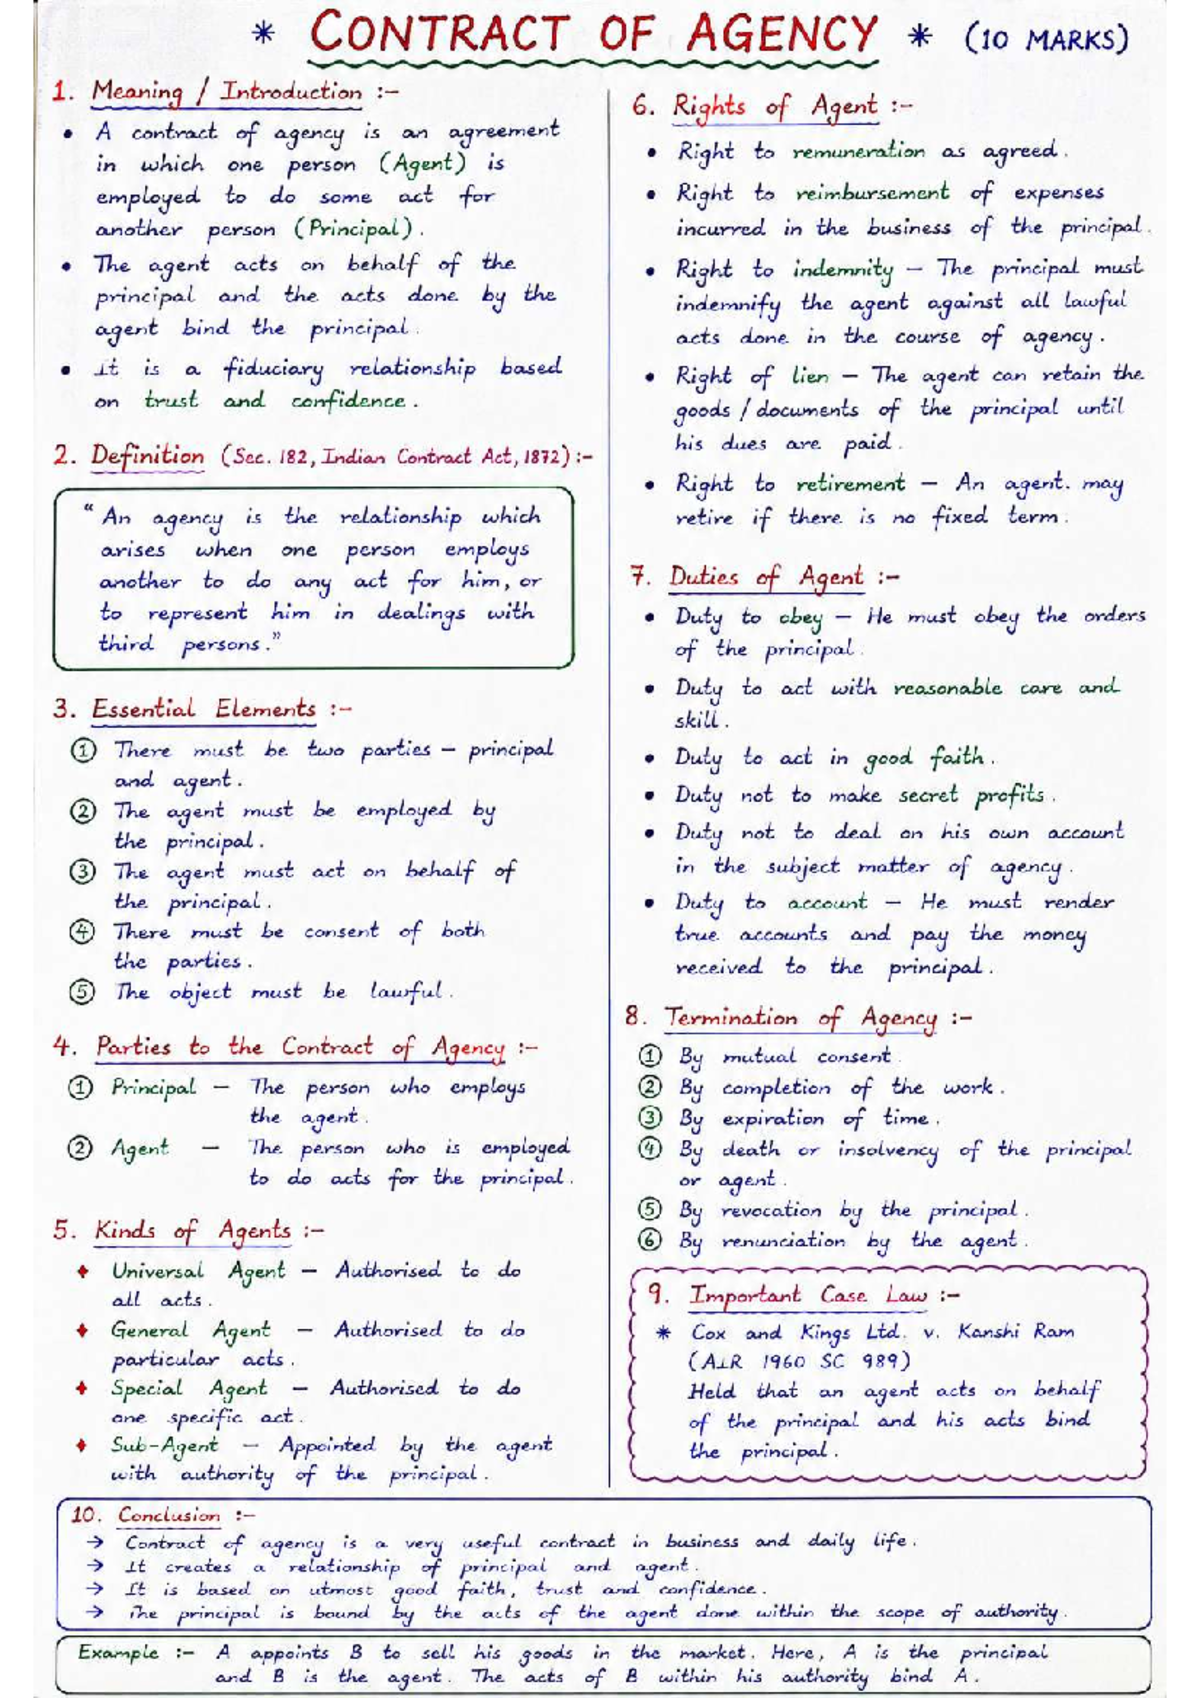 * CONTRACT OF AGENCY * (10 MARKS)
1. Meaning / Introduction :-
• A contract of agency is an agreement
in which one person (Agent) is
employed to do some act for
another person (Principal).
• The agent acts on behalf of the
principal and the acts done by the
agent bind the principal.
• It is a fiduciary relationship based
on trust and confidence.
2. Definition (Sec. 182, Indian Contract Act, 1872) :-
“ An agency is the relationship which
arises when one person employs
another to do any act for him, or
to represent him in dealings with
third persons.”
3. Essential Elements :-
① There must be two parties – principal
and agent.
② The agent must be employed by
the principal.
③ The agent must act on behalf of
the principal.
④ There must be consent of both
the parties.
⑤ The object must be lawful.
4. Parties to the Contract of Agency :-
① Principal – The person who employs
the agent.
② Agent – The person who is employed
to do acts for the principal.
5. Kinds of Agents :-
♦ Universal Agent – Authorised to do
all acts.
♦ General Agent – Authorised to do
particular acts.
♦ Special Agent – Authorised to do
one specific act.
♦ Sub-Agent – Appointed by the agent
with authority of the principal.
6. Rights of Agent :-
• Right to remuneration as agreed.
• Right to reimbursement of expenses
incurred in the business of the principal.
• Right to indemnity – The principal must
indemnify the agent against all lawful
acts done in the course of agency.
• Right of lien – The agent can retain the
goods / documents of the principal until
his dues are paid.
• Right to retirement – An agent. may
retire if there is no fixed term.
7. Duties of Agent :-
• Duty to obey – He must obey the orders
of the principal.
• Duty to act with reasonable care and
skill.
• Duty to act in good faith.
• Duty not to make secret profits.
• Duty not to deal on his own account
in the subject matter of agency.
• Duty to account – He must render
true accounts and pay the money
received to the principal.
8. Termination of Agency :-
① By mutual consent.
② By completion of the work.
③ By expiration of time.
④ By death or insolvency of the principal
or agent.
⑤ By revocation by the principal.
⑥ By renunciation by the agent.
9. Important Case Law :-
* Cox and Kings Ltd. v. Kanshi Ram
(AIR 1960 SC 989)
Held that an agent acts on behalf
of the principal and his acts bind
the principal.
10. Conclusion :-
→ Contract of agency is a very useful contract in business and daily life.
→ It creates a relationship of principal and agent.
→ It is based on utmost good faith, trust and confidence.
→ The principal is bound by the acts of the agent done within the scope of authority.
Example :- A appoints B to sell his goods in the market. Here, A is the principal
and B is the agent. The acts of B within his authority bind A.